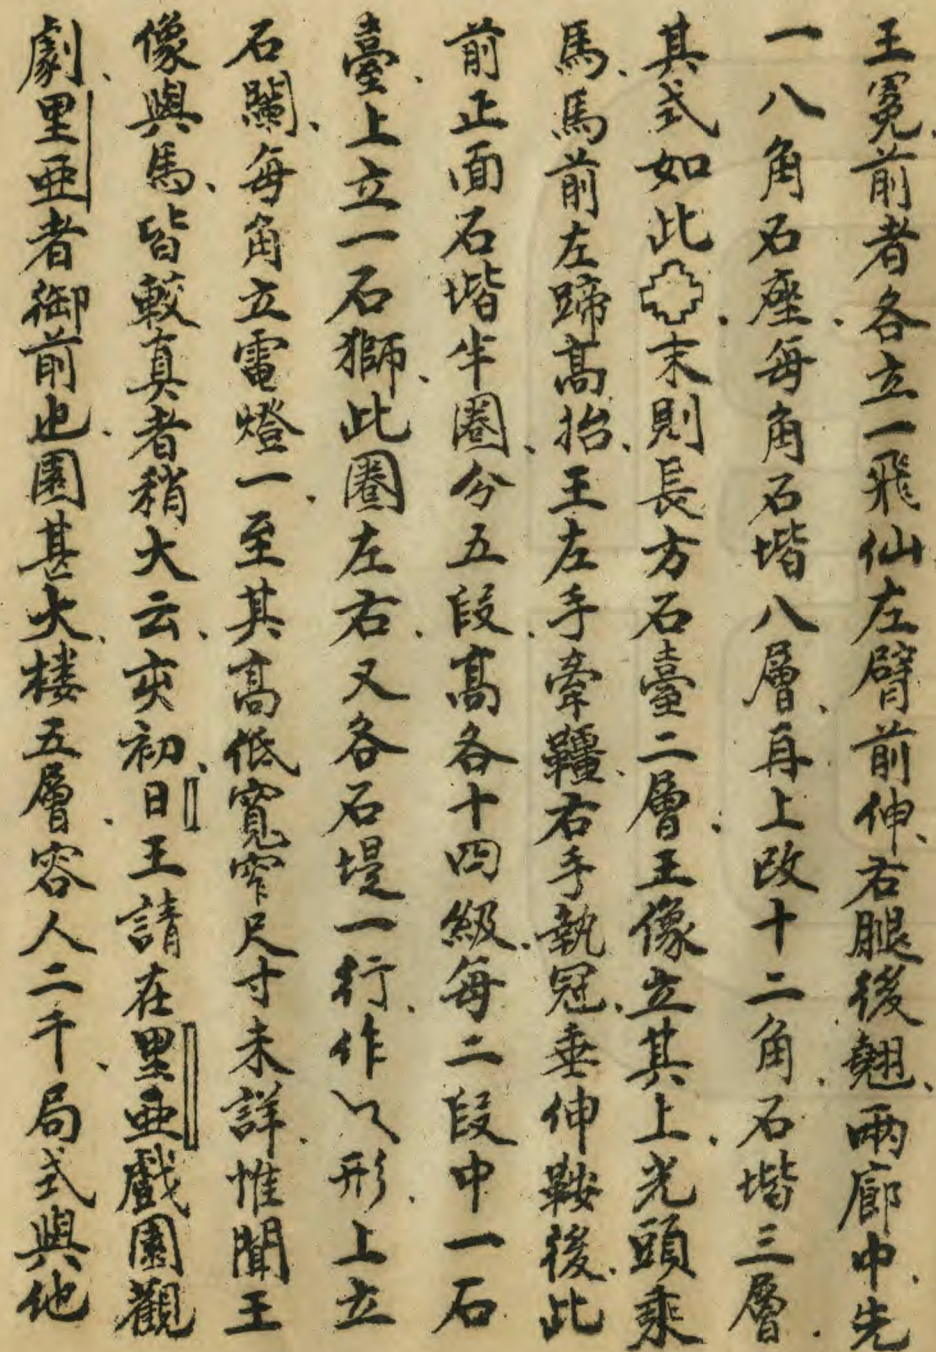 王冕前者各立一飛仙左臂前伸、右腿後翹、兩廊中、先
一八角石座、每角石堦八層、再上改十二角、石堦三層、
其式如此、末則長方石臺二層、王像立其上、光頭乘
馬、馬前左蹄高抬、王左手牽韁右手執冠、垂伸鞍後、此
前正面石堦半圈、分五段、高各十四級、每二段中一石
臺、上立一石獅、此圈左右、又各石堤一行、作乀形、上立
石闌、每角立電燈一、至其高低寬窄尺寸未詳、惟聞王
像與馬、皆較真者稍大云、亥初、日王請在里亜戲園觀
劇、里亜者御前也、園甚大、楼五層、容人二千、局式與他